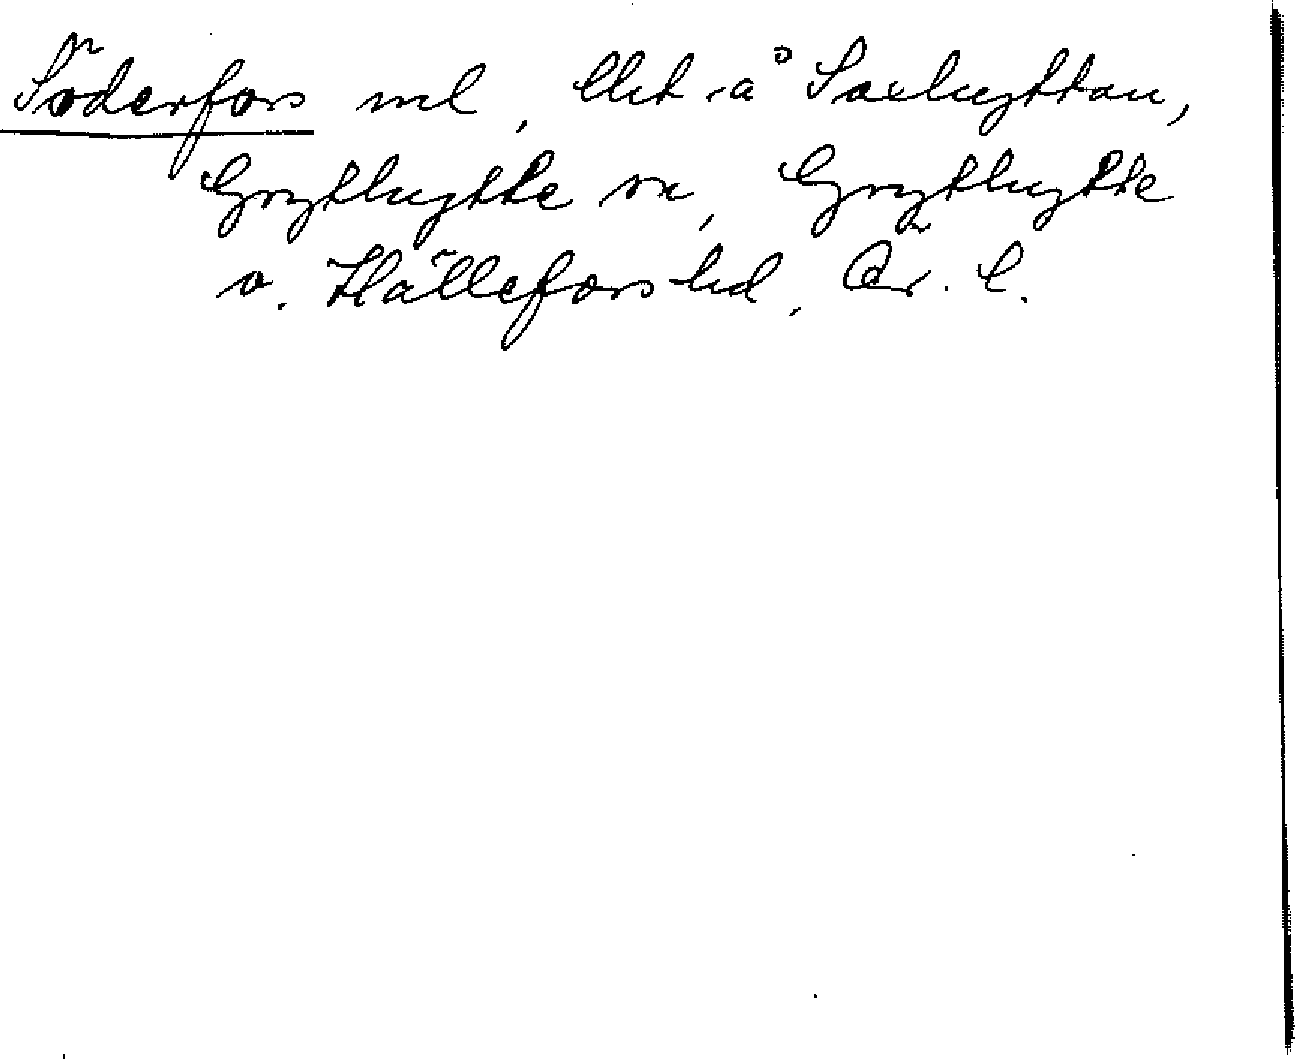 Söderfors ml, låt å Saxhyttan,
Grythytte sn, Grythytte
o. Hällefors hd, Ör. l.